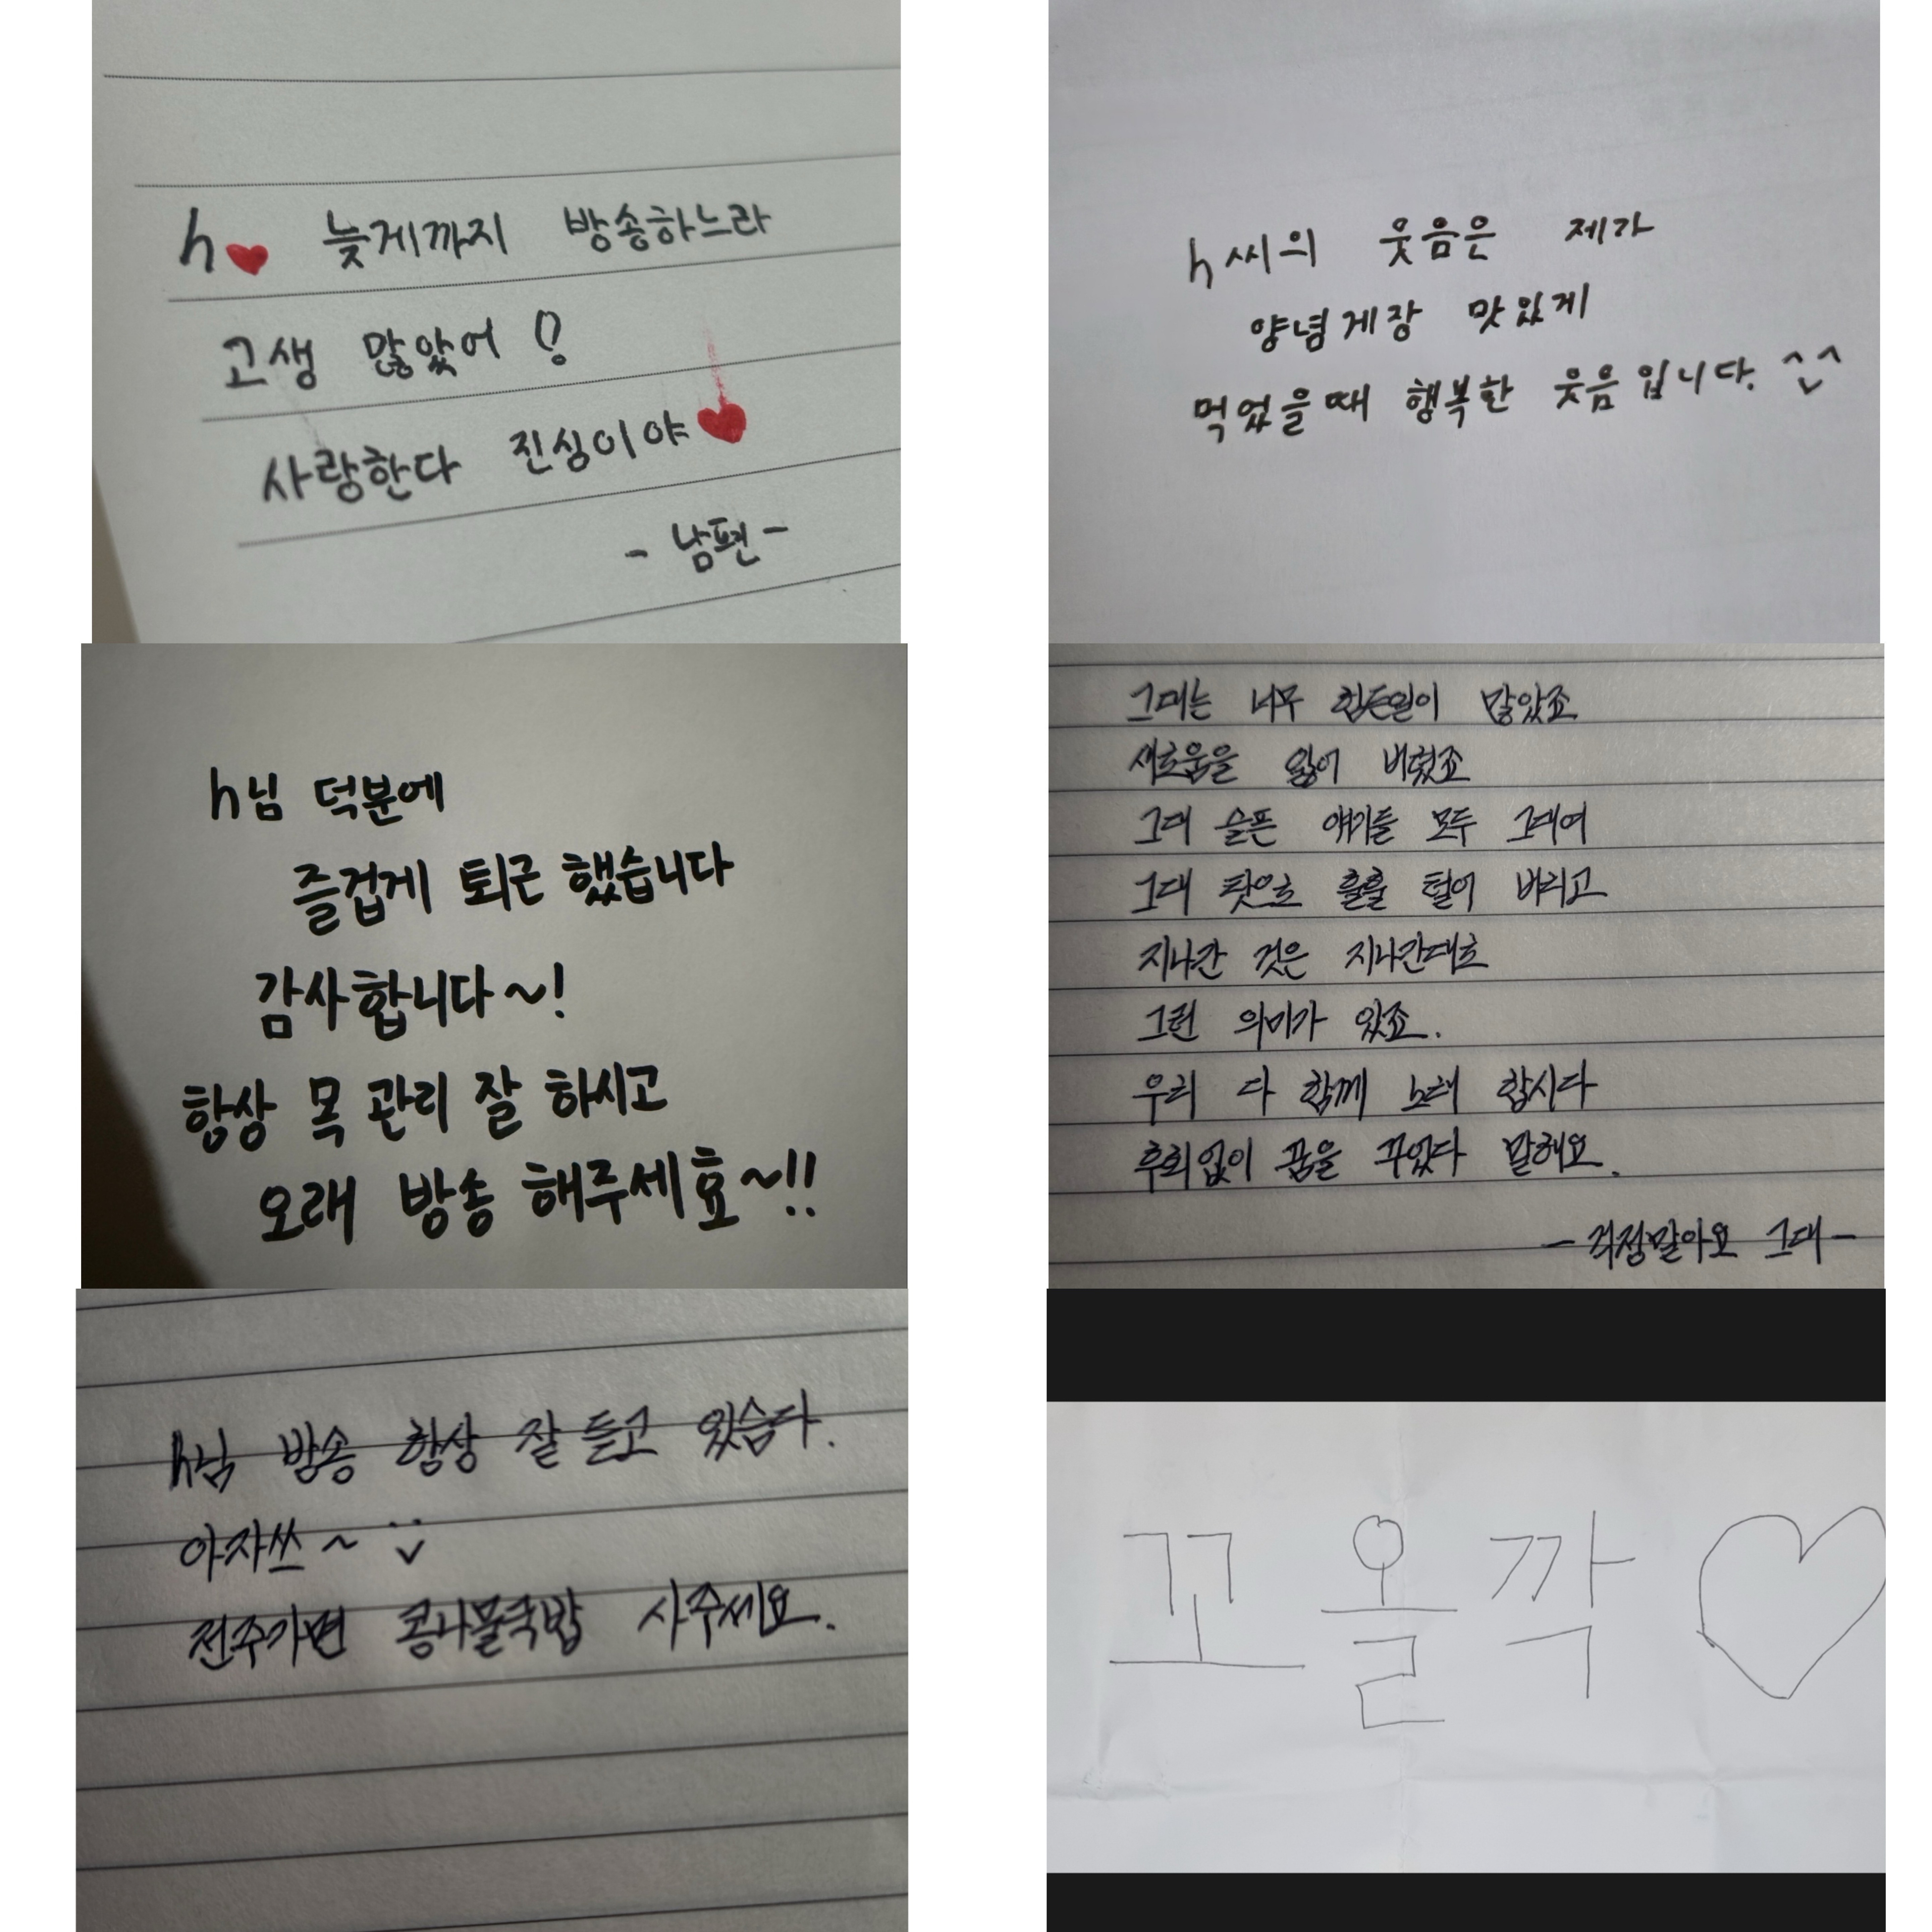 h♥ 늦게까지 방송하느라
고생 많았어!
사랑한다 진심이야♥
- 남편 -
h씨의 웃음은 제가
양념게장 맛있게
먹었을때 행복한 웃음입니다. ^^
h님 덕분에
즐겁게 퇴근 했습니다
감사합니다~!
항상 목 관리 잘 하시고
오래 방송 해주세효~!!
그대는 너무 힘든일이 많았죠
새로움을 잃어 버렸죠
그대 슬픈 얘기들 모두 그대여
그대 탓으로 훌훌 털어 버리고
지나간 것은 지나간대로
그런 의미가 있죠.
우리 다 함께 노래 합시다
후회없이 꿈을 꾸었다 말해요.
- 걱정말아요 그대 -
h님 방송 항상 잘 듣고 있슴다.
아자쓰~
전주가면 콩나물국밥 사주세요.
꼬올깍♡